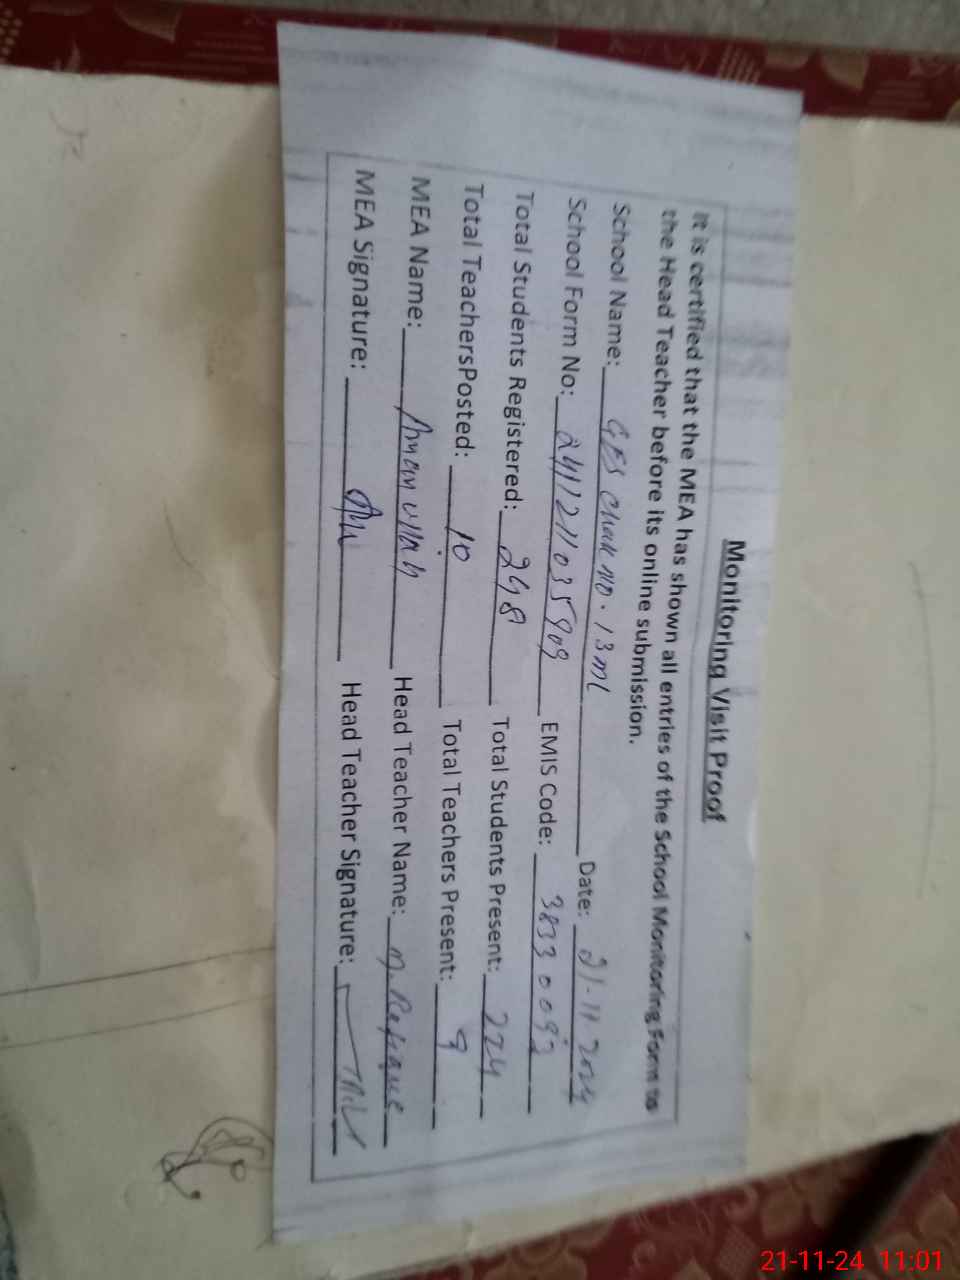 Monitoring Visit Proof
It is certified that the MEA has shown all entries of the School Monitoring Form to
the Head Teacher before its online submission.
School Name: GES Chak No. 13 ML Date: 21-11-2024
School Form No: 2411211035909 EMIS Code: 38330092
Total Students Registered: 248 Total Students Present: 224
Total TeachersPosted: 10 Total Teachers Present: 9
MEA Name: Aman Ullah Head Teacher Name: M. Rafique
MEA Signature: Head Teacher Signature:
21-11-24 11:01